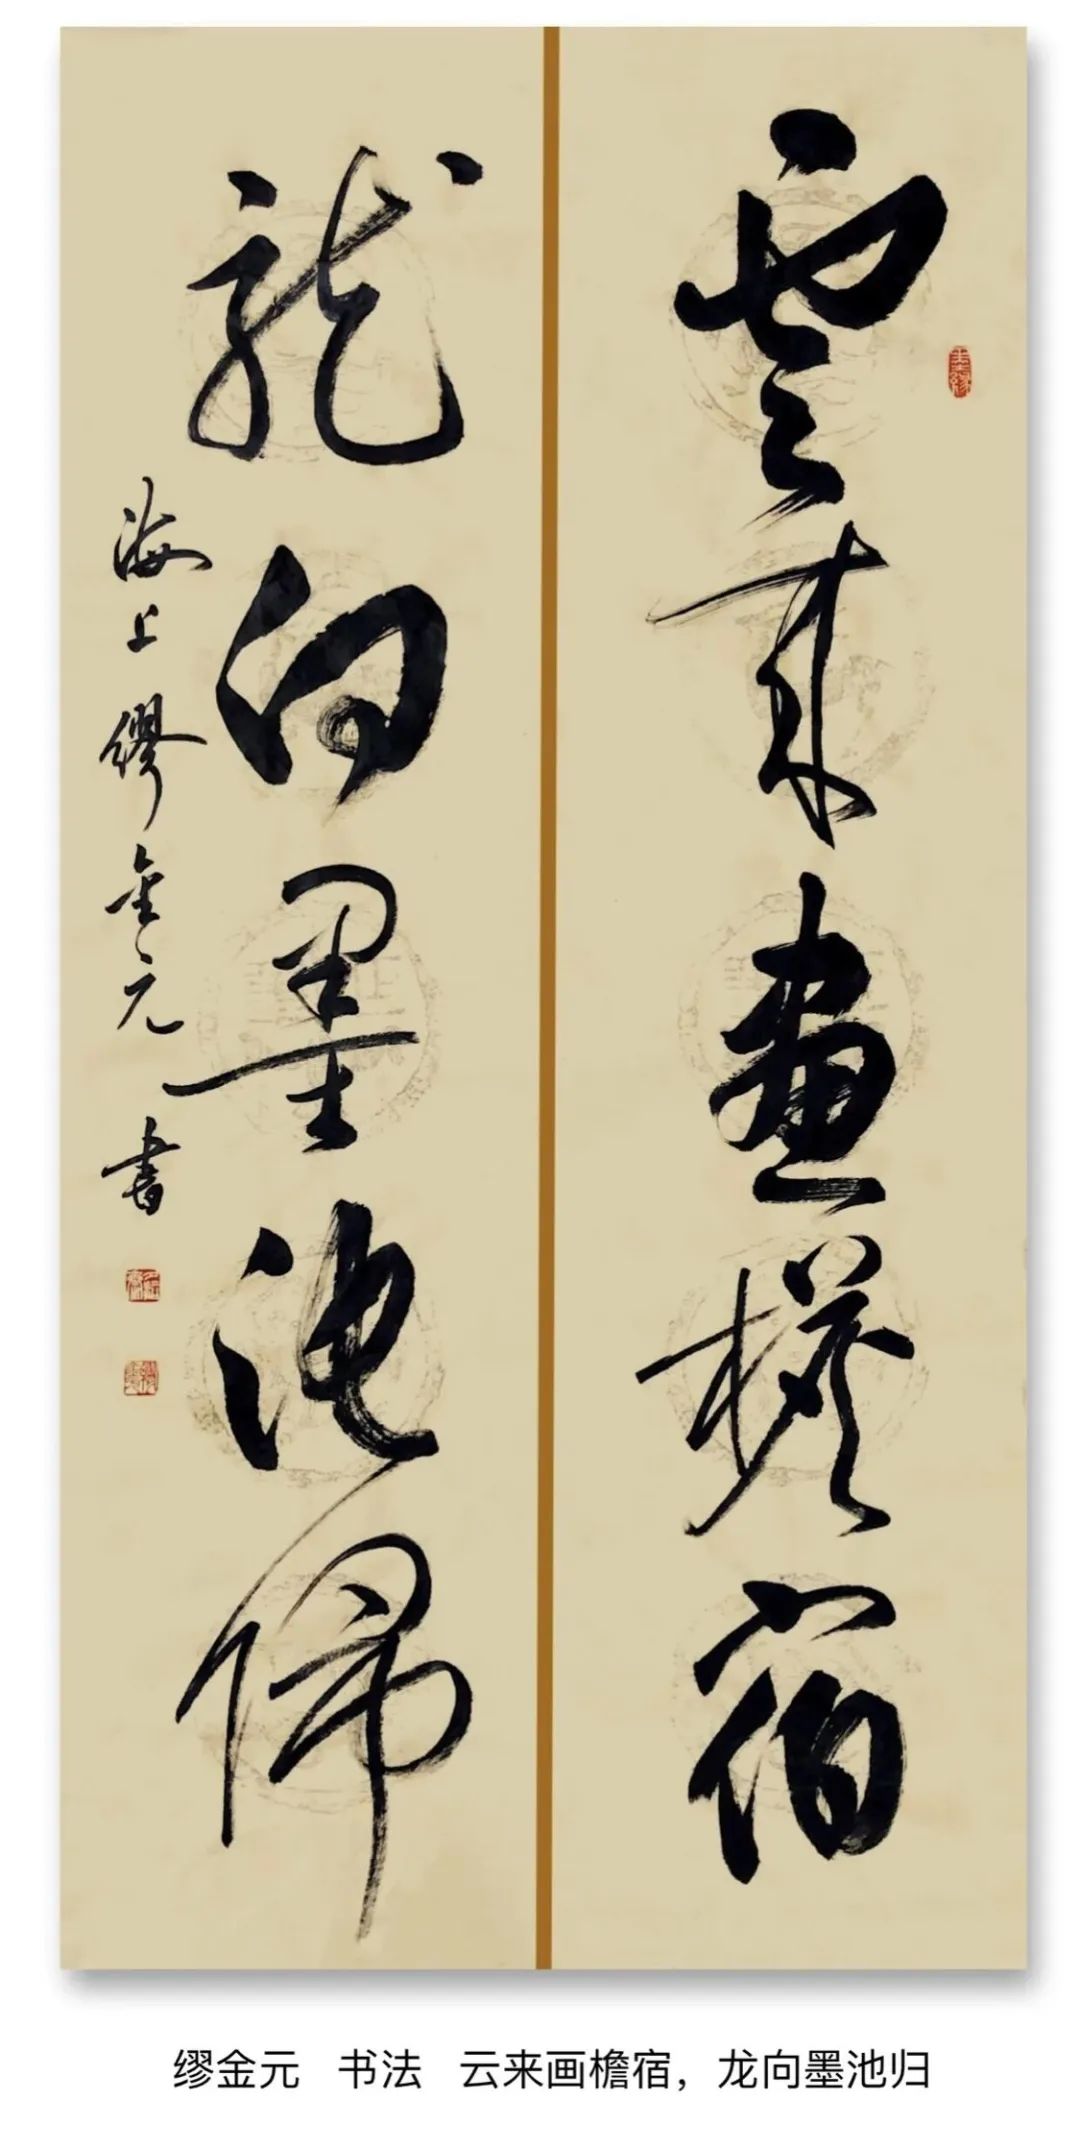 雲来畫檐宿
龍向墨池歸
海上繆金元書
缪金元 书法 云来画檐宿，龙向墨池归